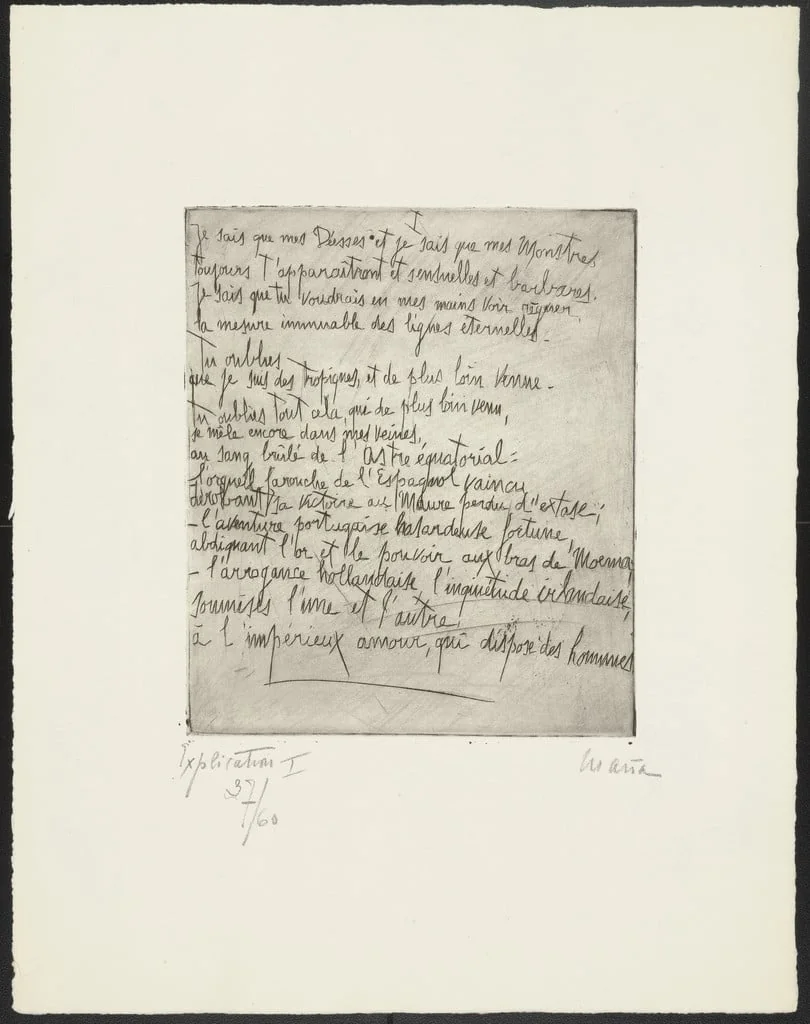 I
Je sais que mes Déesses et je sais que mes Monstres
toujours t'apparaîtront et sensuelles et barbares.
Je sais que tu voudrais en mes mains voir régner
la mesure immuable des lignes éternelles.
Tu oublies
que je suis des tropiques, et de plus loin venue.
Tu oublies tout cela, qui de plus loin venu,
se mêle encore dans mes veines,
au sang brûlé de l'Astre équatorial =
- l'orgueil farouche de l'Espagnol vaincu
dérobant sa victoire au Maure perdu d'extase ;
- l'aventure portugaise hasardeuse fortune,
abdiquant l'or et le pouvoir aux bras de Moema,
- l'arrogance hollandaise, l'inquiétude irlandaise,
soumises l'une et l'autre
à l'impérieux amour, qui dispose des hommes
Explication I
37/60
Maria